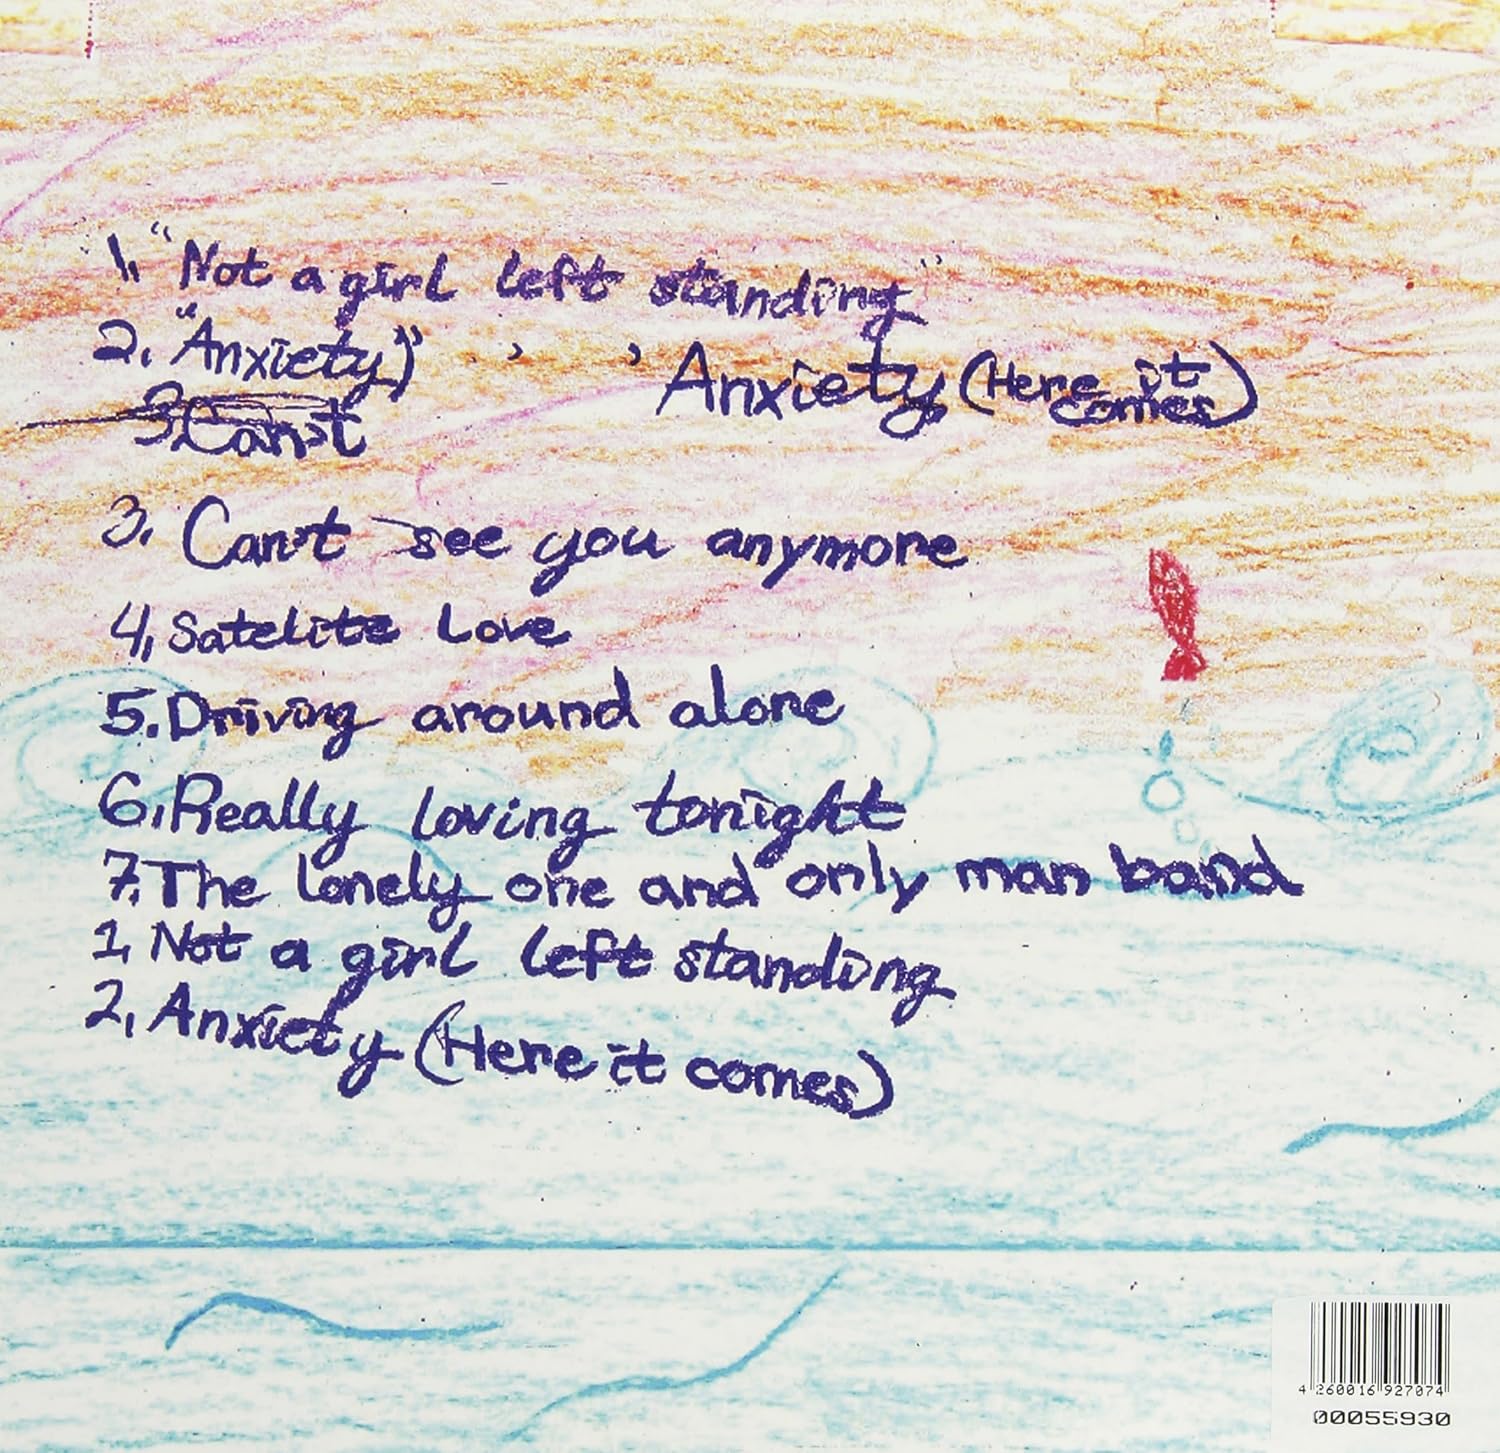 1. "Not a girl left standing"
2. "Anxiety)" , , Anxiety (Here it comes)
3. Can't
3. Can't see you anymore
4, Satelite Love
5. Driving around alone
6, Really loving tonight
7. The lonely one and only man band
1, Not a girl left standing
2, Anxiety (Here it comes)
4 260016 927074
00055930